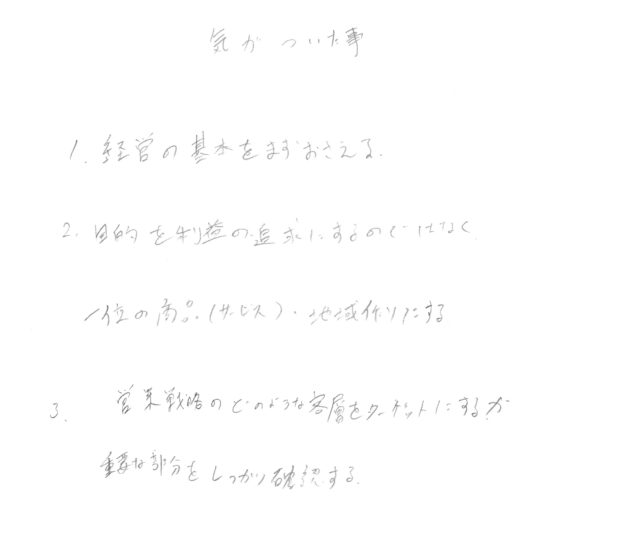 気がついた事
1. 経営の基本をまずおさえる.
2. 目的を利益の追求にするのではなく
一位の商品(サービス)・地域作りにする
3. 営業戦略のどのような客層をターゲットにするか
重要な部分をしっかり確認する.